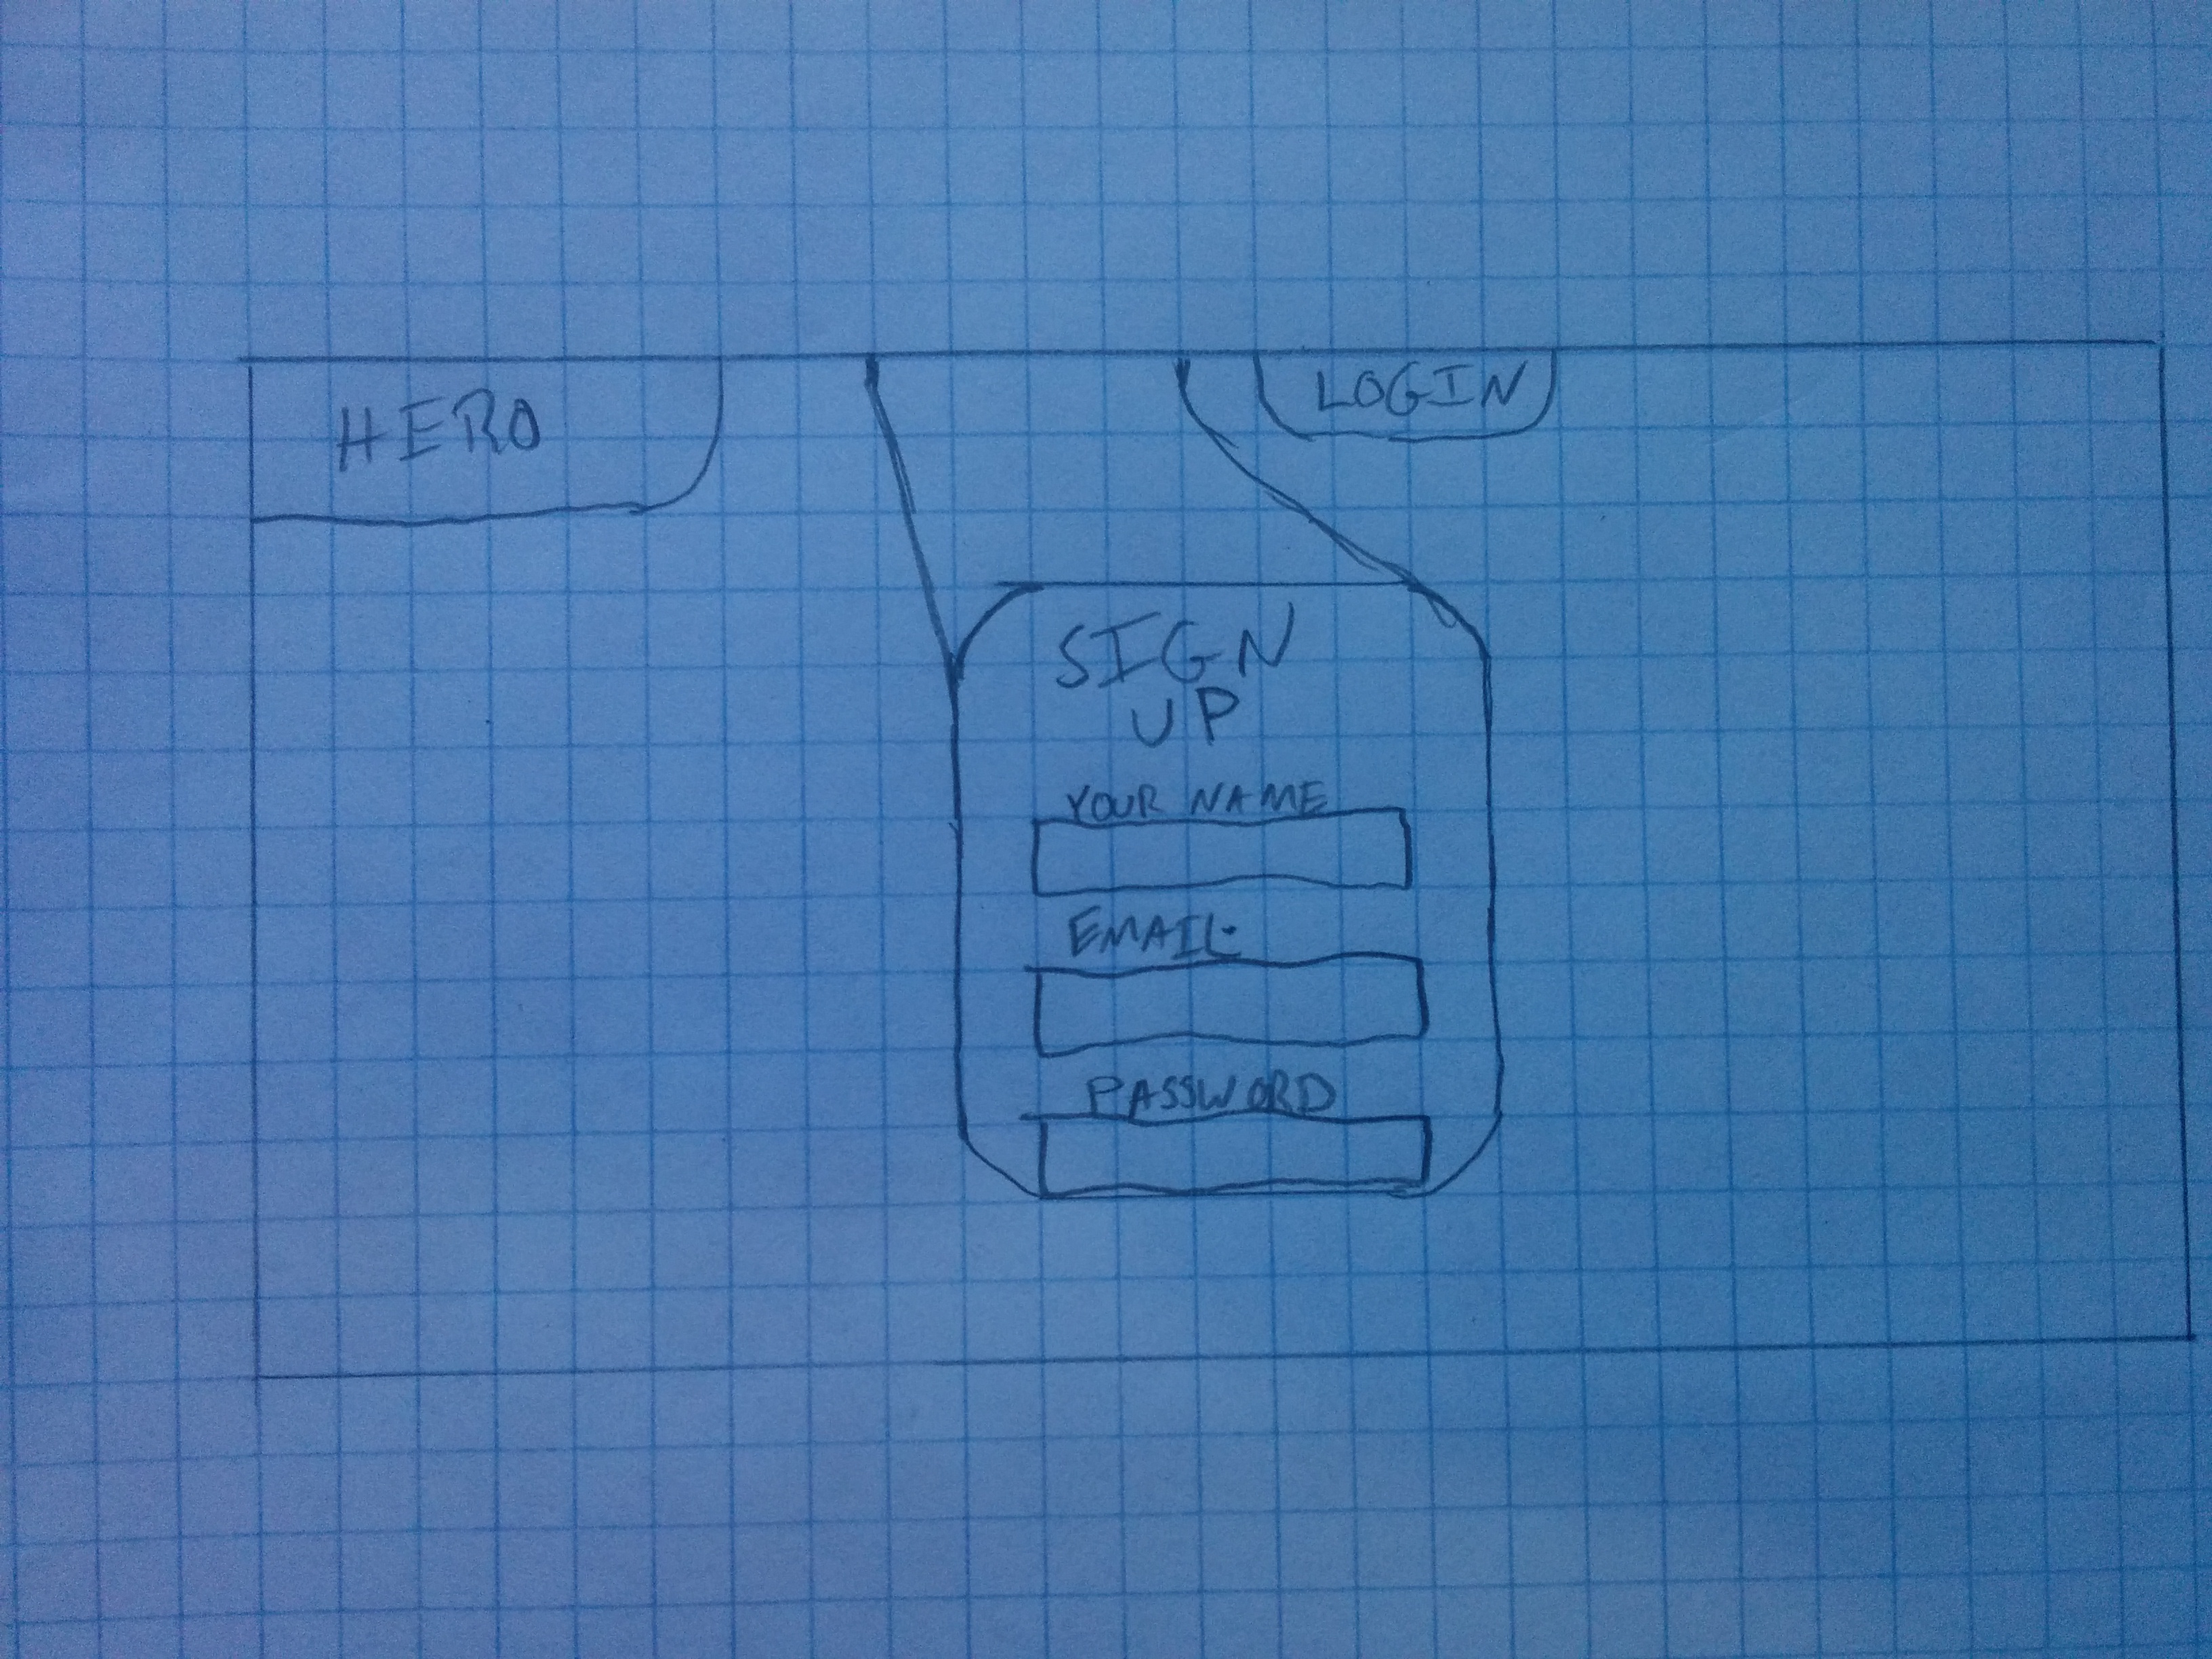 HERO
LOGIN
SIGN
UP
YOUR NAME
EMAIL
PASSWORD